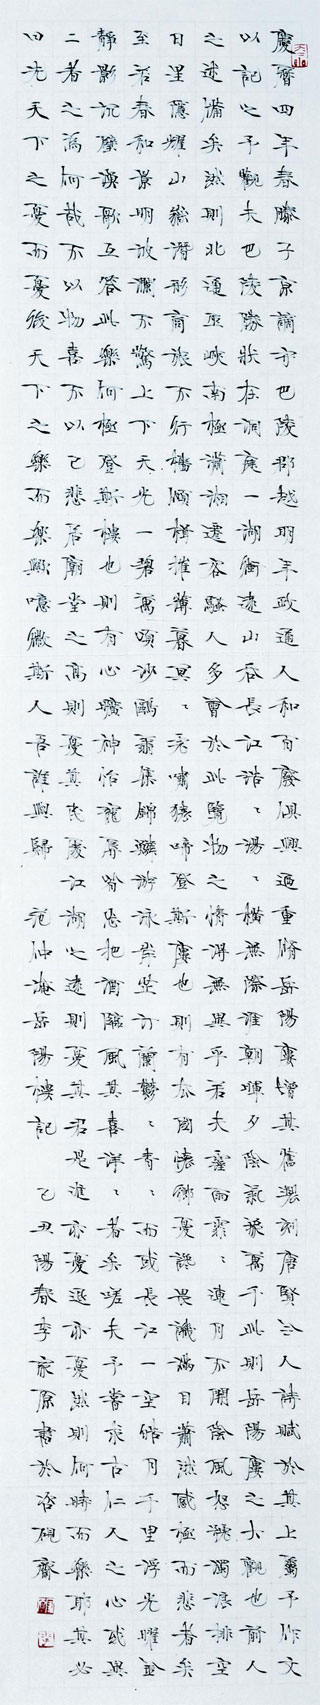 慶曆四年春滕子京謫守巴陵郡越明年政通人和百廢俱興迺重脩岳陽樓增其舊制刻唐賢今人詩賦於其上屬予作文
以記之予觀夫巴陵勝狀在洞庭一湖銜遠山吞長江浩〻湯〻橫無際涯朝暉夕陰氣象萬千此則岳陽樓之大觀也前人
之述備矣然則北通巫峽南極瀟湘遷客騷人多會於此覽物之情得無異乎若夫霪雨霏〻連月不開陰風怒號濁浪排空
日星隱耀山嶽潛形商旅不行檣傾楫摧薄暮冥〻虎嘯猿啼登斯樓也則有去國懷鄉憂讒畏譏滿目蕭然感極而悲者矣
至若春和景明波瀾不驚上下天光一碧萬頃沙鷗翔集錦鱗游泳岸芷汀蘭鬱〻青〻而或長江一空皓月千里浮光曜金
靜影沉璧漁歌互答此樂何極登斯樓也則有心曠神怡寵辱皆忘把酒臨風其喜洋〻者矣嗟夫予嘗求古仁人之心或異
二者之為何哉不以物喜不以己悲居廟堂之高則憂其民處江湖之遠則憂其君是進亦憂退亦憂然則何時而樂耶其必
曰先天下之憂而憂後天下之樂而樂歟噫微斯人吾誰與歸 范仲淹岳陽樓記 乙丑陽春李家原書於否硯齋